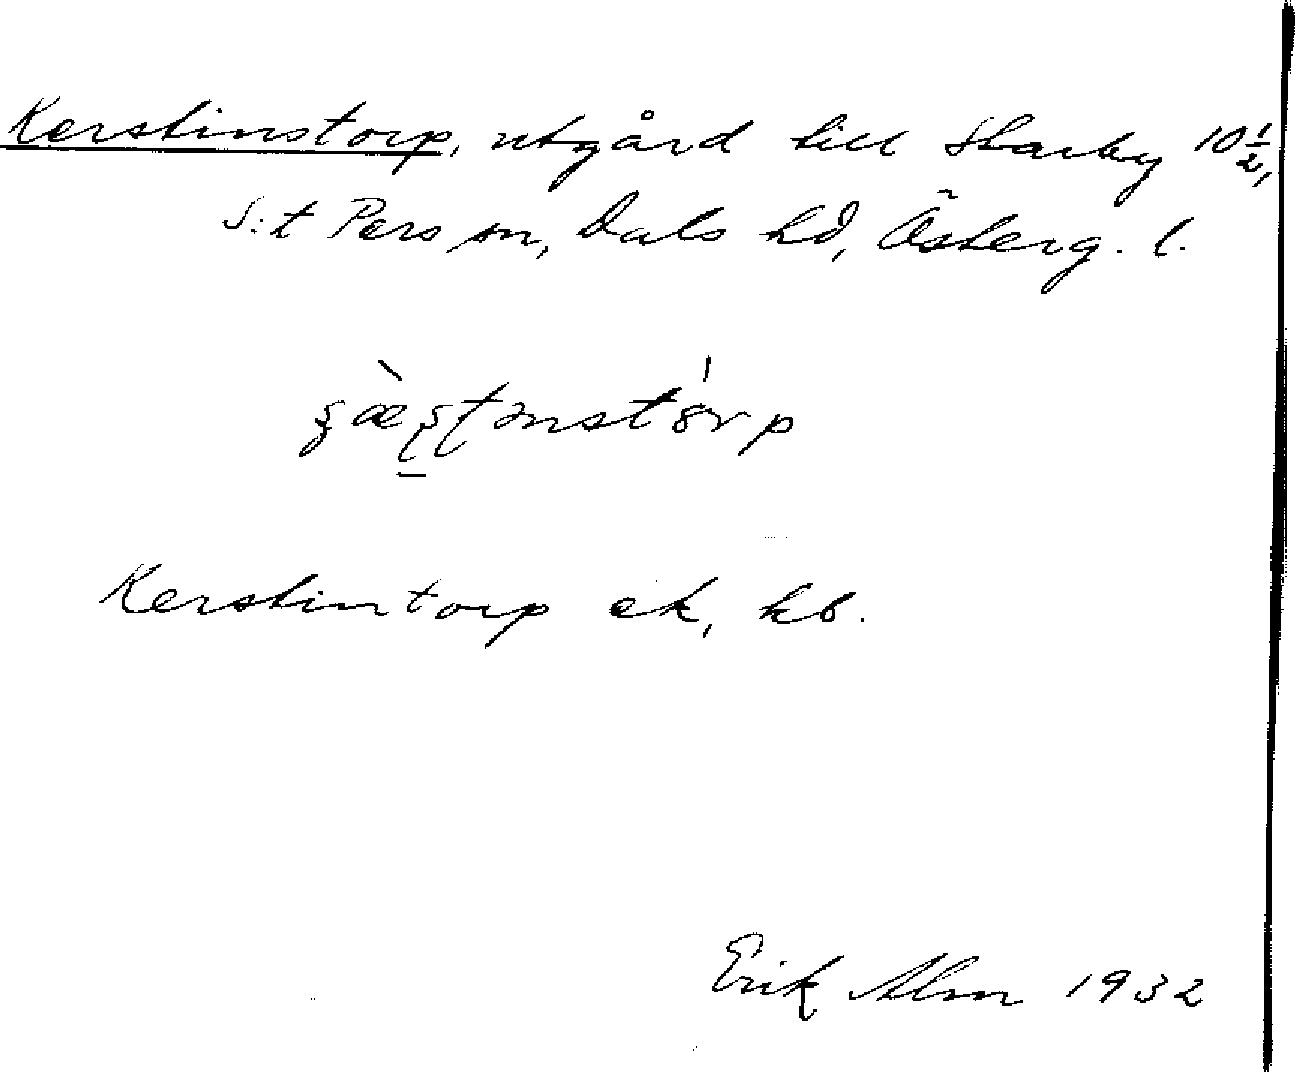 Kerstinstorp, utgård till Starby 10 1/2,
S:t Pers sn, Dals hd, Österg. l.
Kerstintorp ek, kb.
Erik Alm 1932